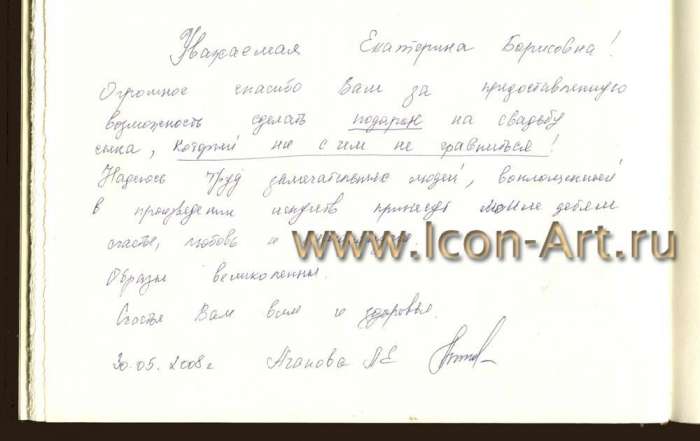 Уважаемая Екатерина Борисовна!
Огромное спасибо Вам за предоставленную
возможность сделать подарок на свадьбу
сына, который ни с чем не сравнится!
Надеюсь труд замечательных людей, воплощенный
в произведении искусств принесёт моим детям
счастье, любовь и
www.Icon-Art.ru
Образы великолепны.
Счастья Вам всем и здоровья.
30.05.2008г Агапова ЛЕ